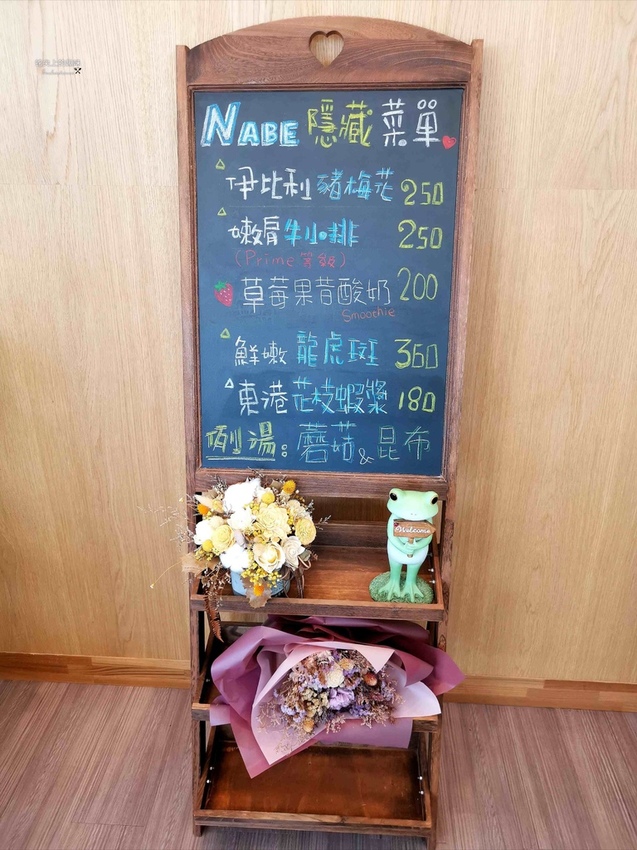 NABE 隱藏菜單
伊比利豬梅花 250
嫩肩牛小排 250
(Prime等級)
草莓果昔酸奶 200
Smoothie
鮮嫩龍虎斑 360
東港花枝蝦漿 180
湯:蘑菇&昆布
Welcome